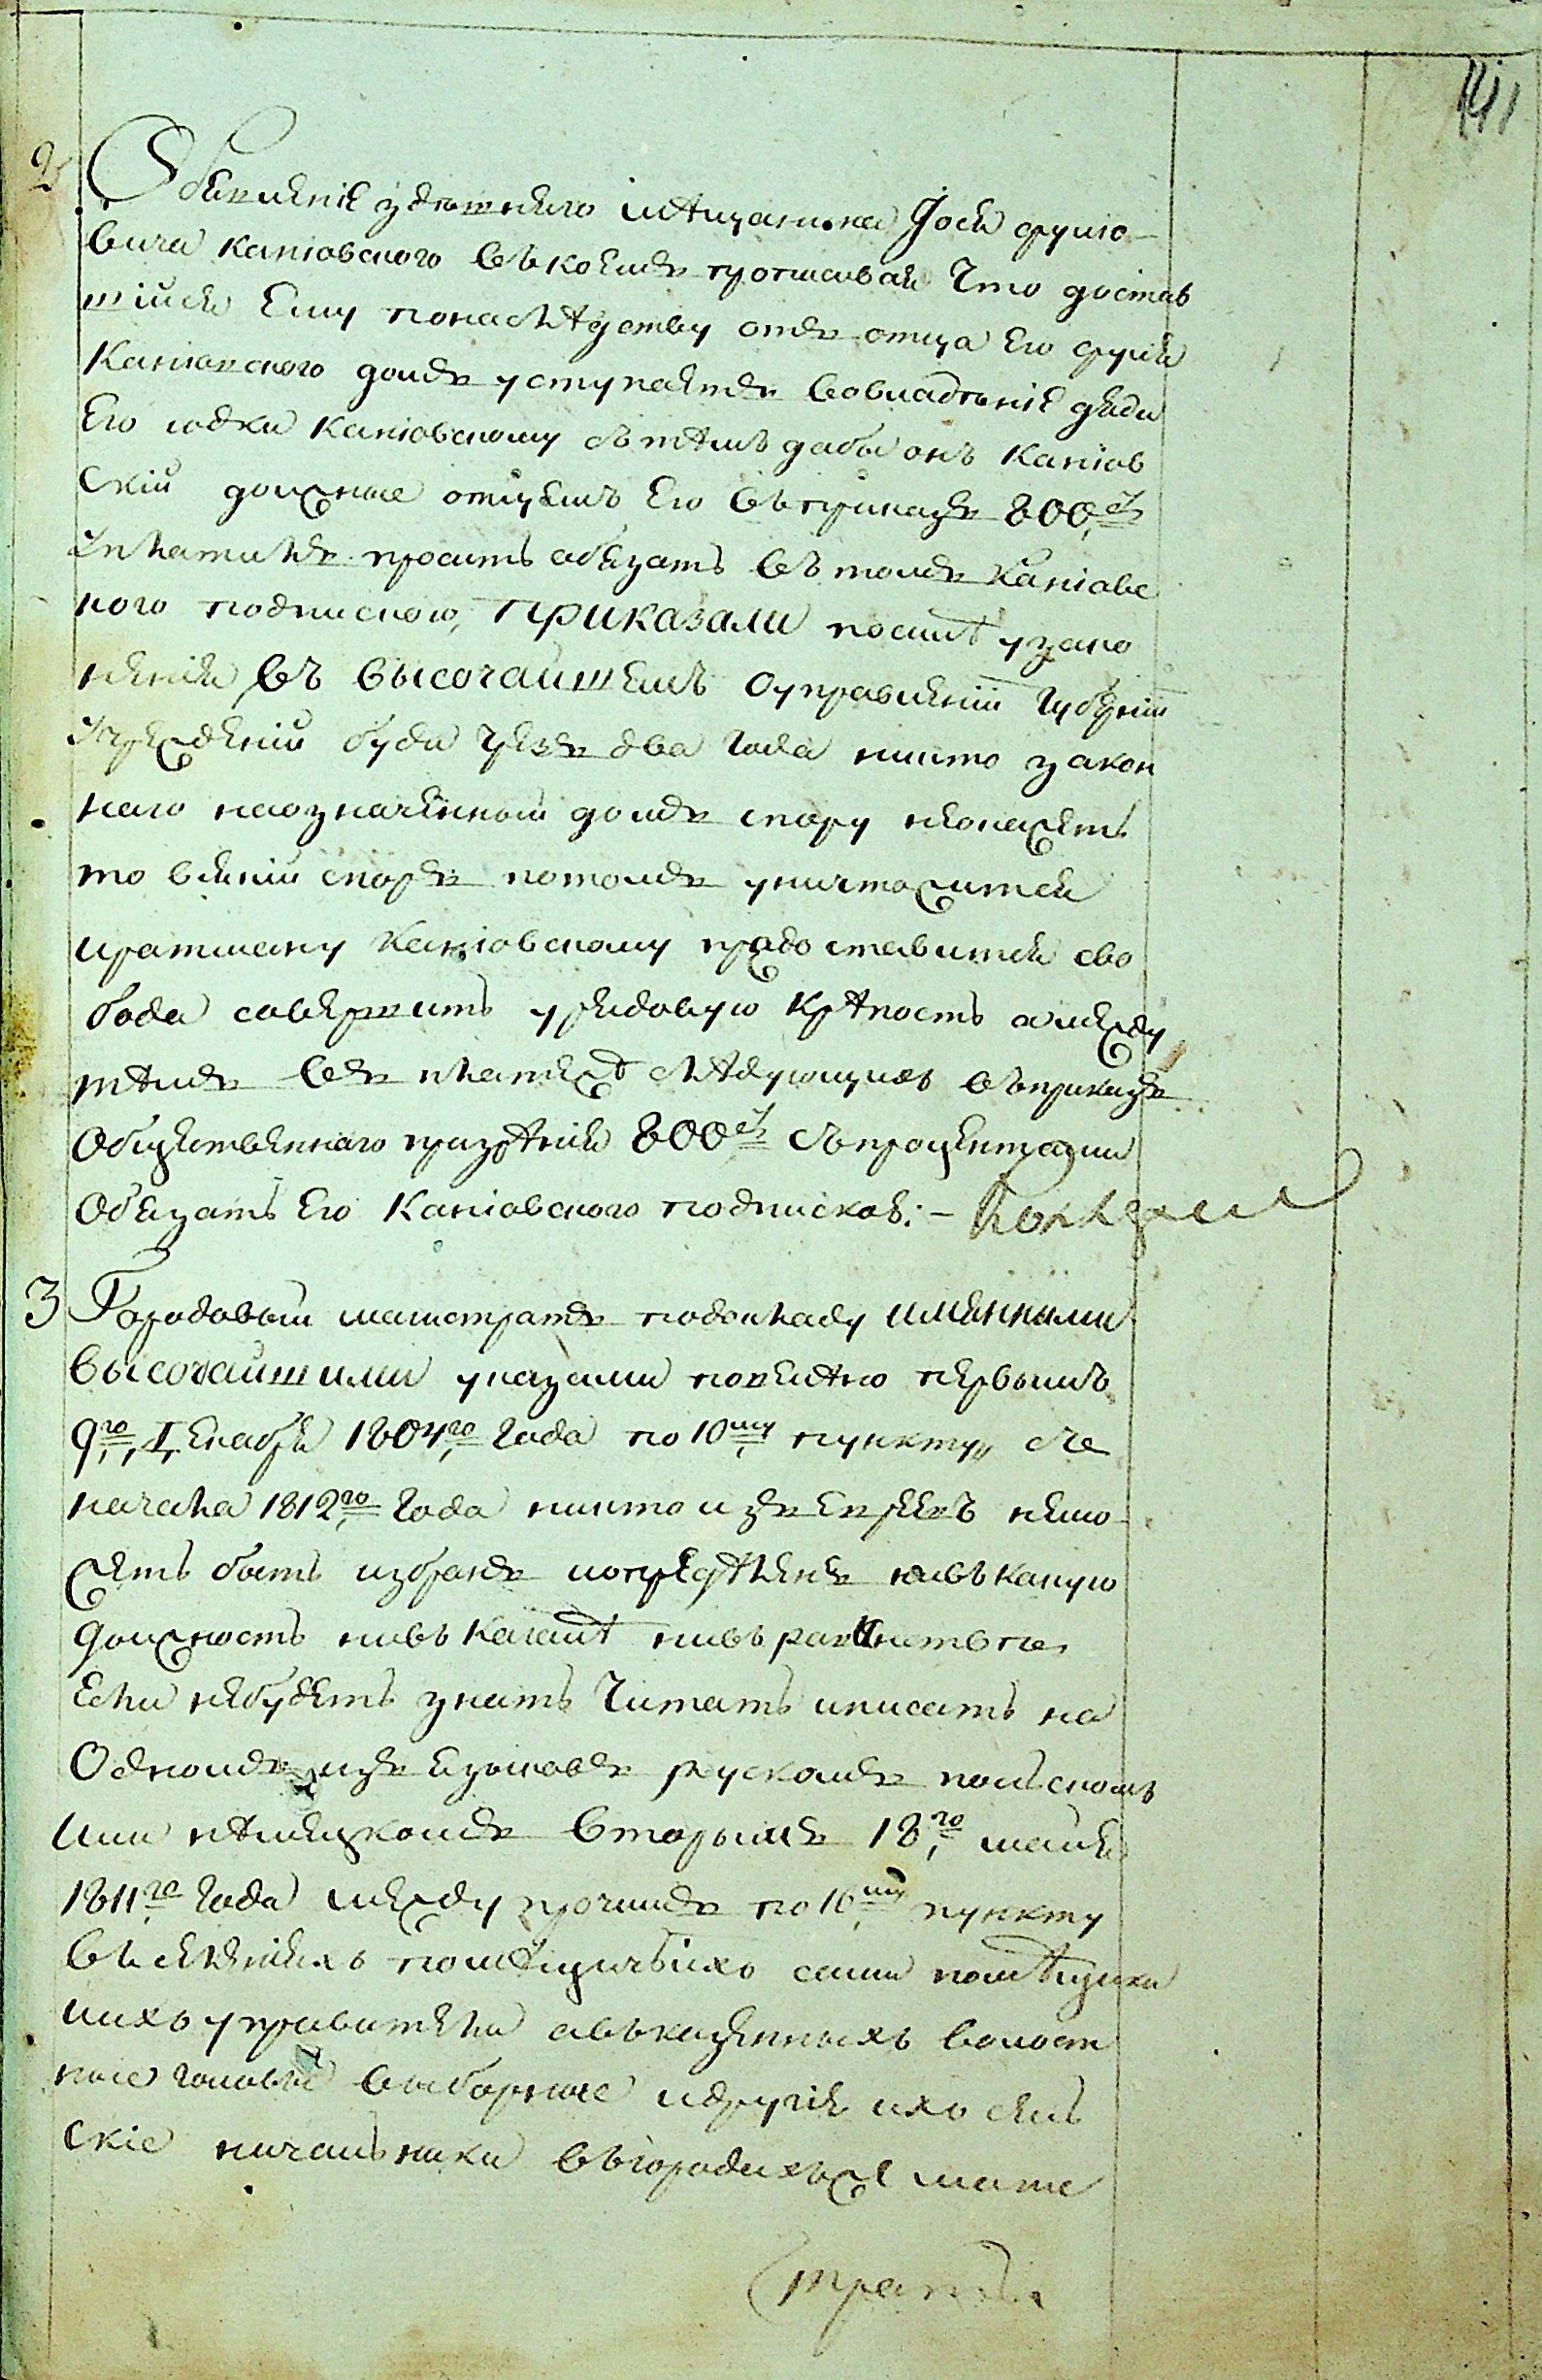 141
2 Объявленіе здешняго мѣщанина Іося фрулю-
вича каніовского въ коемъ прописывая что достав
шійся Ему понаслѣдству отъ отца Его фруля
Каніовского домъ уступаетъ вовладеніе дяди
Его юдки каніовскому съ тѣмъ дабы онъ Каніов
скій должные отцемъ Его въ приказъ 800 р
уплатилъ просить обязать въ томъ Каніовс
кого подпискою, Приказали посилѣ узако
ненія въ высочайшемъ оуправленіи Губерній
Учрежденіи буде чрезъ два года никто закон
наго наозначенный домъ спору неокажетъ
то всякій споръ потомъ уничтожится
ипотому Каніовскому предоставится сво
бода совершить урядовую крѣпость амежду
тѣмъ въ платежѣ слѣдующихъ въприказъ
Общественнаго призрѣнія 800 р съпроцентами
Обязать Его Каніовского подпискою:-
3 Городовый магистратъ подокладу имянными
высочайшими указами повелѣно первымъ
9го Декабря 1804го Года по 10му пункту съ
начала 1812го Года никто изъ Евреевъ немо-
жетъ быть избранъ иопредѣленъ нивъкакую
должность нивъ Кагалѣ нивъ равинствѣ
Если небудетъ знать читать иписать на
Одномъ изъ Языковъ рускомъ польскомъ
или нѣмецкомъ вторымъ 18го маія
1811го Года между прочимъ по 16му пункту
въселеніяхъ помѣщичьихъ сами помѣщики
иихъ управители авъказенныхъ волост
ные головы выборные идругія ихъ сель
скіе начальники въгородахъже маги
страты